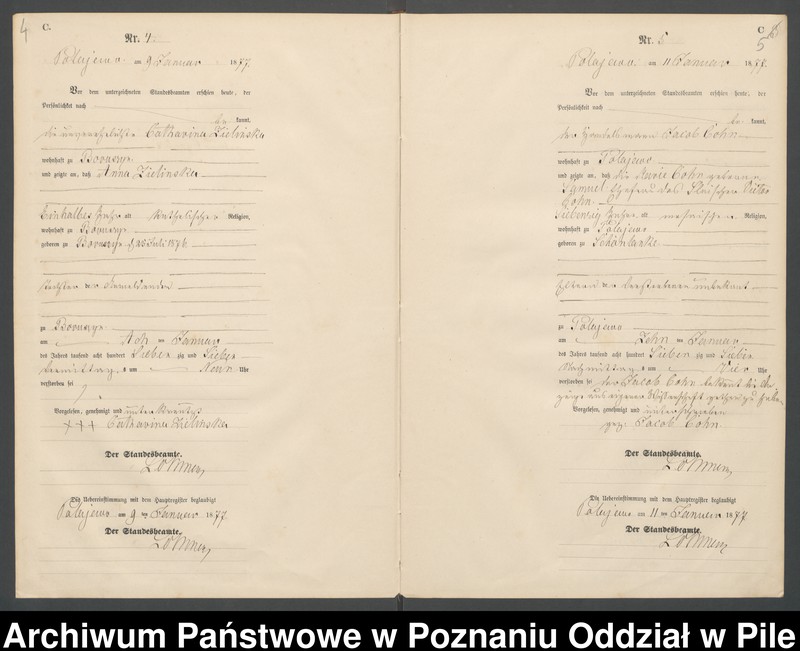 4
C.
Nr. 4
Polajewo am 9 Januar 1877.
Vor dem unterzeichneten Standesbeamten erschien heute, der
Persönlichkeit nach
kannt,
die unverehelichte Catharina Zielinska
wohnhaft zu Boruszyn
und zeigte an, daß Anna Zielinska
Einhalbes Jahr alt Katholischer Religion,
wohnhaft zu Boruszyn
geboren zu Boruszyn d. 25 Juli 1876
Tochter der Anmeldenden
zu Boruszyn
am Acht ten Januar
des Jahres tausend acht hundert Sieben zig und Sieben
Vormittags um Neun Uhr
verstorben sei
Vorgelesen, genehmigt und unterkreuzt
+++ Catharina Zielinska
Der Standesbeamte.
Die Uebereinstimmung mit dem Hauptregister beglaubigt
Polajewo am 9 ten Januar 1877
Der Standesbeamte.
C.
5
Nr. 5
Polajewo am 11 Januar 1877.
Vor dem unterzeichneten Standesbeamten erschien heute, der
Persönlichkeit nach
be kannt,
der Handelsmann Jacob Cohn
wohnhaft zu Polajewo
und zeigte an, daß die Marie Cohn geborene
Samuel Ehefrau des Fleischers
Cohn
Siebenzig Jahre alt mosaischer Religion,
wohnhaft zu Polajewo
geboren zu Schönlanke
Eltern der Verstorbenen unbekannt
zu Polajewo
am Zehn ten Januar
des Jahres tausend acht hundert Sieben zig und Sieben
Nachmittags um Vier Uhr
verstorben sei der Jacob Cohn bekennt die An-
zeige aus eigener Wissenschaft gethan zu haben
Vorgelesen, genehmigt und unterschrieben
gez. Jacob Cohn
Der Standesbeamte.
Die Uebereinstimmung mit dem Hauptregister beglaubigt
Polajewo am 11 ten Januar 1877
Der Standesbeamte.
Archiwum Państwowe w Poznaniu Oddział w Pile